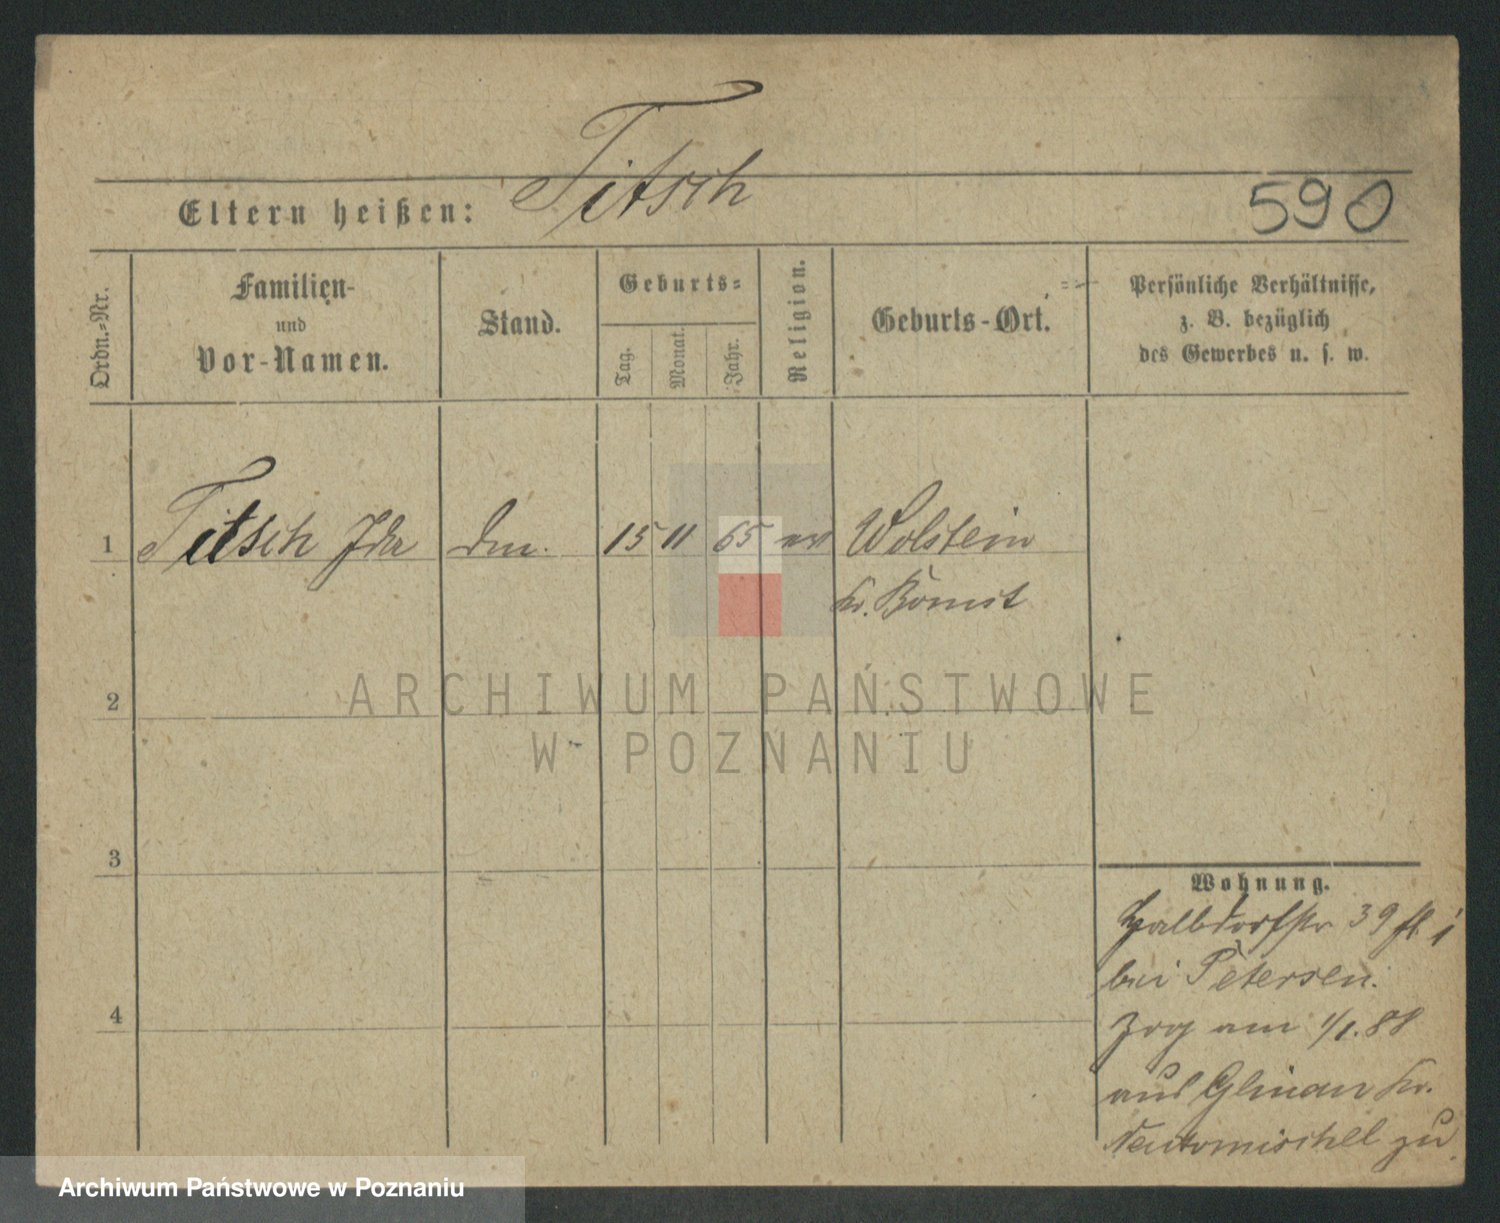 Titsch
Eltern heißen:
590
Ordn.-Nr.
Familien-
und
Vor-Namen.
Stand.
Geburts-
Tag.
Monat.
Jahr.
Religion.
Geburts-Ort.
Persönliche Verhältnisse,
z. B. bezüglich
des Gewerbes u. s. w.
1 Titsch Ida 15 11 65 ev Wolstein
Kr. Bomst
2
3
4
Wohnung.
Halbdorfstr 39
bei Petersen.
Zog am 1/1. 88
aus Glinau Kr.
Neutomischel zu
ARCHIWUM PAŃSTWOWE
W POZNANIU
Archiwum Państwowe w Poznaniu